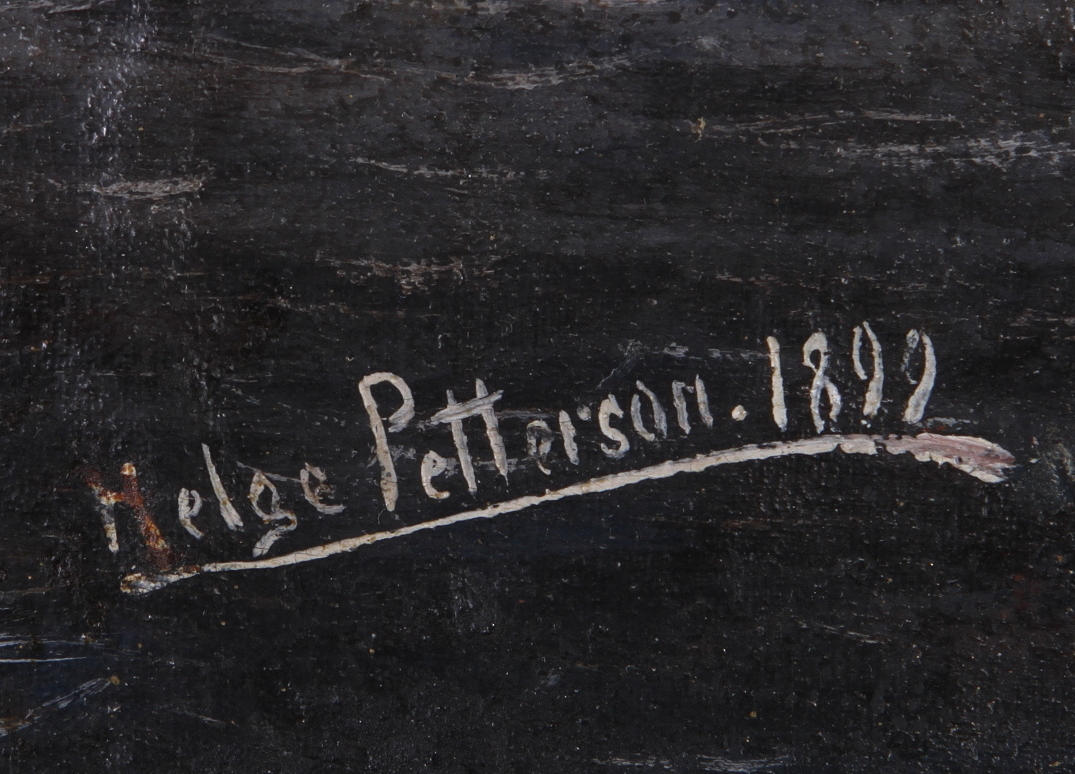 Helge Petterson. 1899